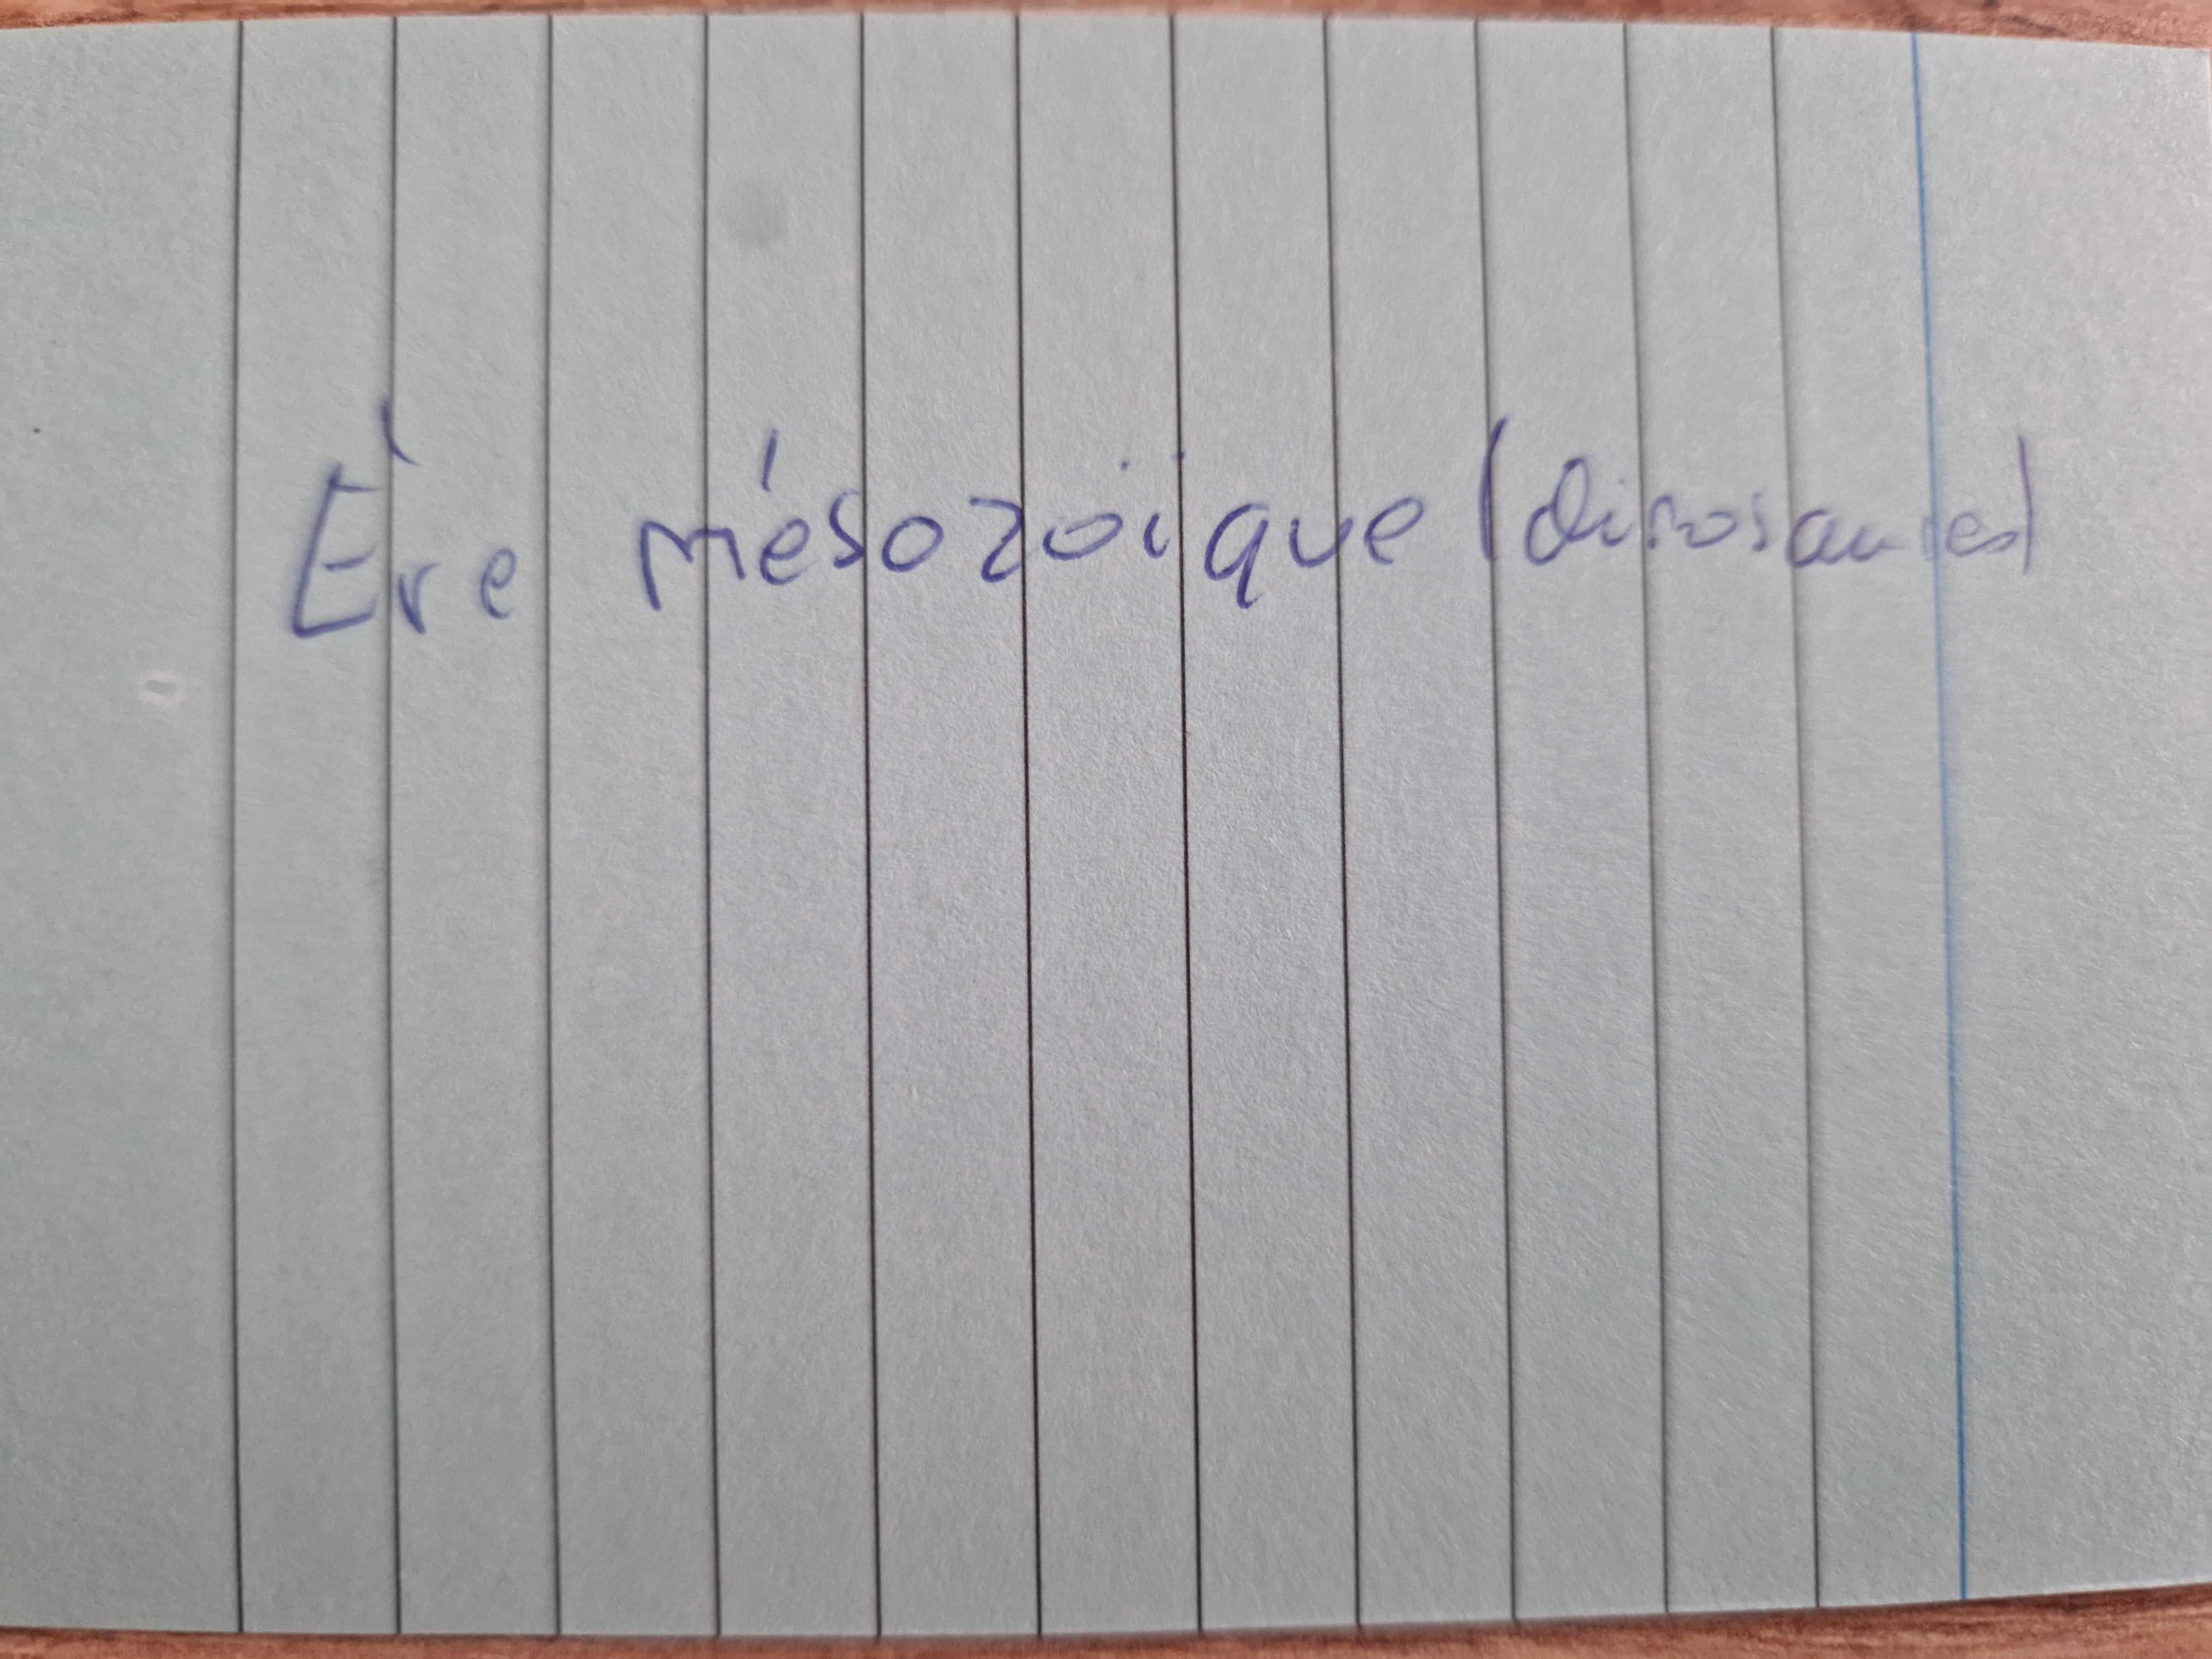 Ère mésozoïque (dinosaures)